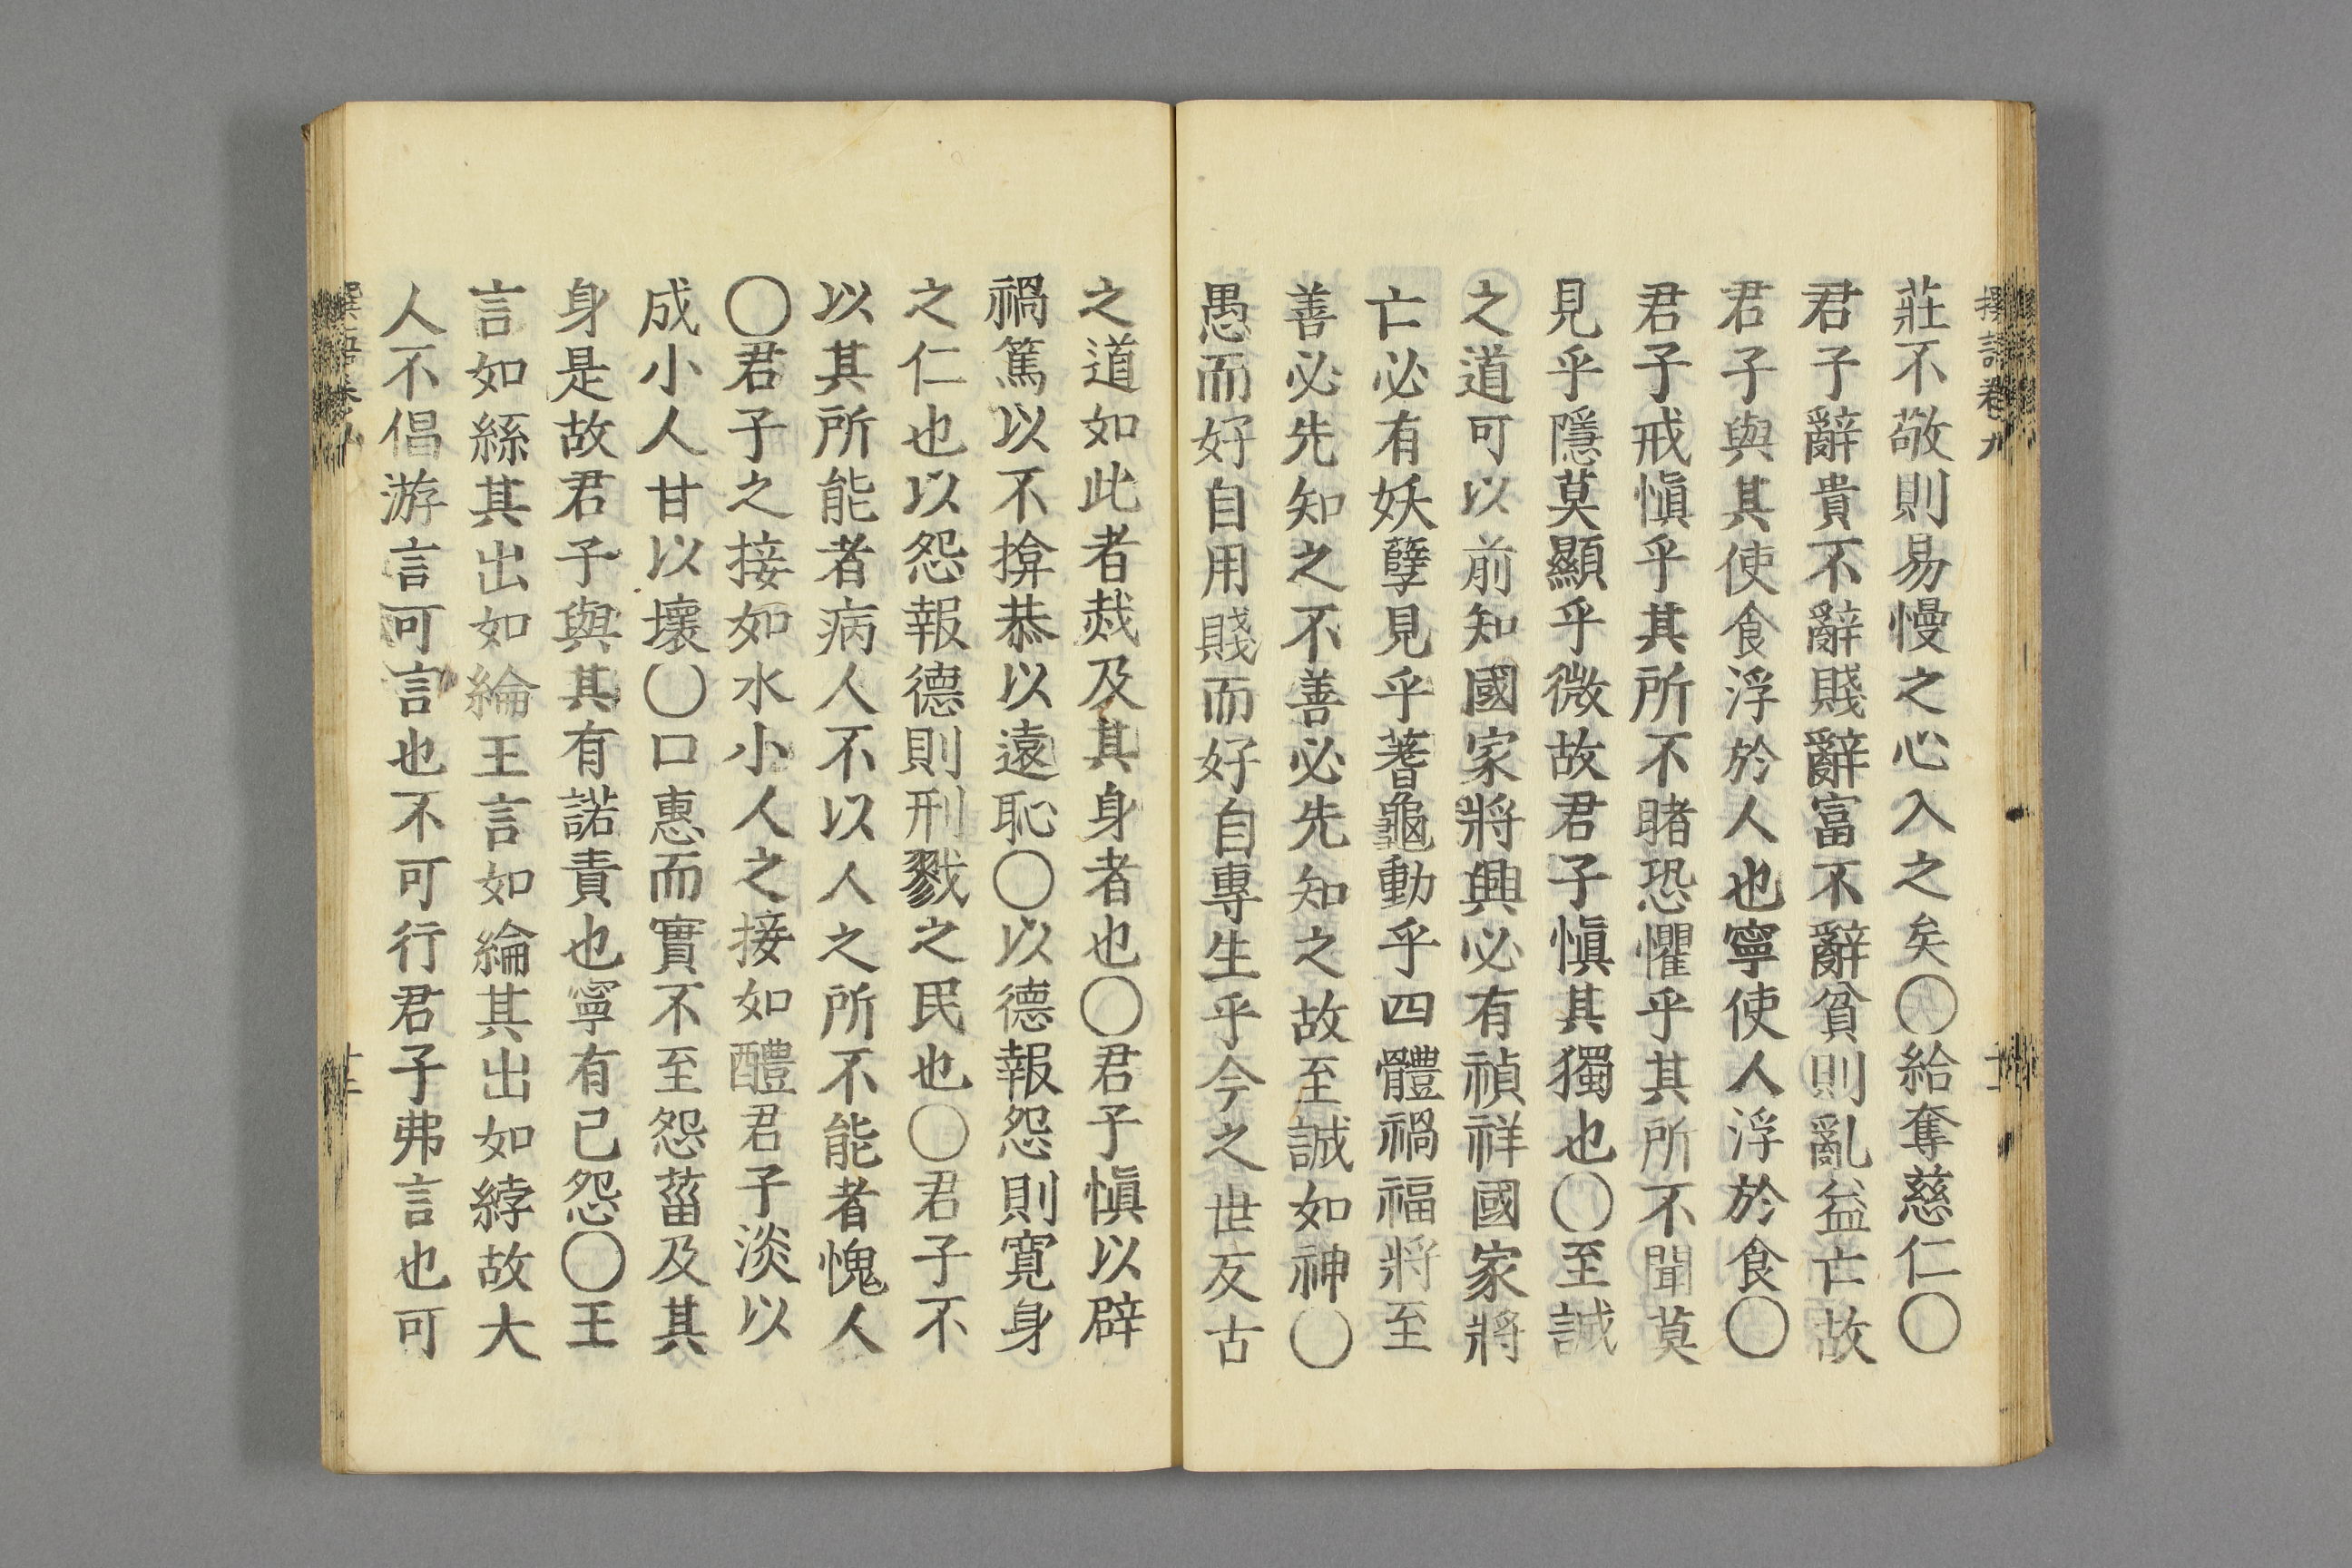 撰語卷九
莊不敬則易慢之心入之矣〇給奪慈仁〇
君子辭貴不辭賤辭富不辭貧則亂益亡故
君子與其使食浮於人也寧使人浮於食〇
君子戒愼乎其所不睹恐懼乎其所不聞莫
見乎隱莫顯乎微故君子愼其獨也〇至誠
之道可以前知國家將興必有禎祥國家將
亡必有妖孽見乎蓍龜動乎四體禍福將至
善必先知之不善必先知之故至誠如神〇
愚而好自用賤而好自專生乎今之世反古
之道如此者烖及其身者也〇君子愼以辟
禍篤以不揜恭以遠恥〇以德報怨則寛身
之仁也以怨報德則刑戮之民也〇君子不
以其所能者病人不以人之所不能者愧人
〇君子之接如水小人之接如醴君子淡以
成小人甘以壞〇口惠而實不至怨菑及其
身是故君子與其有諾責也寧有己怨〇王
言如絲其出如綸王言如綸其出如綍故大
人不倡游言可言也不可行君子弗言也可